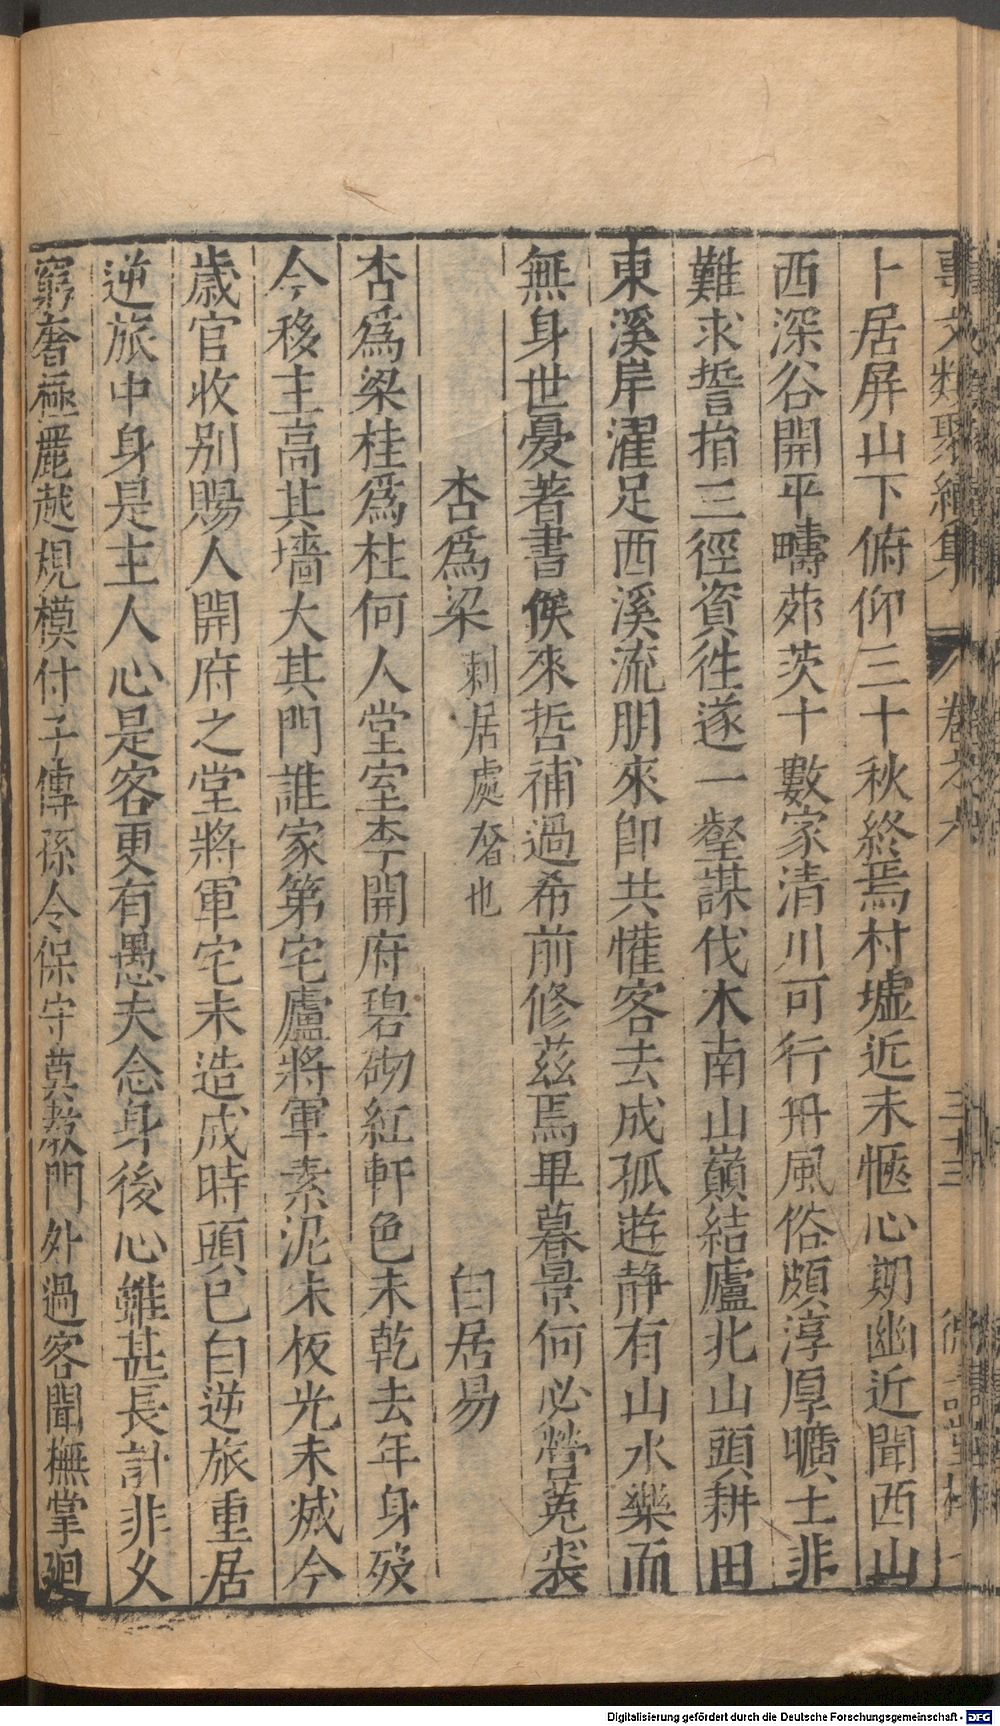 事文類聚續集 卷之六 三十三
卜居屏山下俯仰三十秋終焉村墟近未愜心期幽近聞西山
西深谷開平疇茆茨十數家清川可行舟風俗頗淳厚曠土非
難求誓捐三徑資徃遂一壑謀伐木南山巔結廬北山頭耕田
東溪岸濯足西溪流朋來卽共懽客去成孤遊靜有山水樂而
無身世憂著書俟來哲補過希前修茲焉畢暮景何必營菟裘
杏爲梁 刺居處奢也 白居易
杏爲梁桂爲柱何人堂室李開府碧砌紅軒色未乾去年身歿
今移主高其墻大其門誰家第宅盧將軍素泥朱板光未滅今
歲官收别賜人開府之堂將軍宅未造成時頭已白逆旅重居
逆旅中身是主人心是客更有愚夫念身後心雖甚長計非乆
窮奢極麗越規模付子傳孫令保守莫教門外過客聞撫掌廻
Digitalisierung gefördert durch die Deutsche Forschungsgemeinschaft - DFG